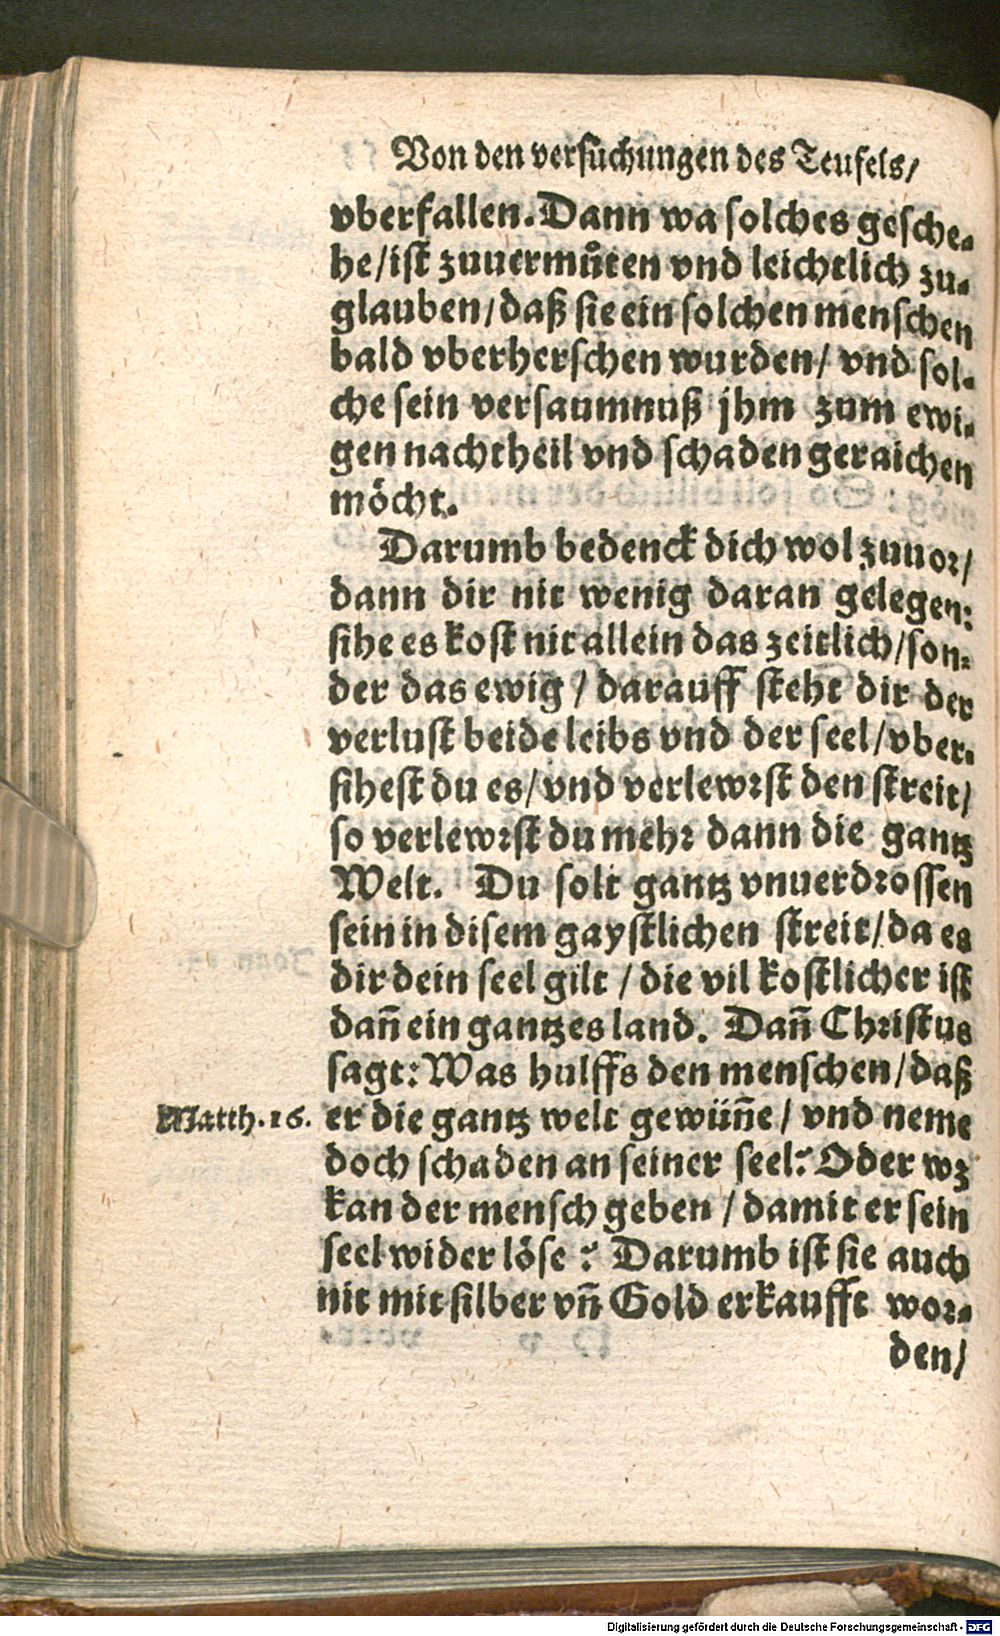 Von den versuchungen des Teufels/
vberfallen. Dann wa solches gesche-
he/ist zuuermůten vnd leichtlich zu-
glauben/daß sie ein solchen menschen
bald vberherschen wurden/ vnd sol-
che sein versaumnuß jhm zum ewi-
gen nachtheil vnd schaden geraichen
möcht.
Darumb bedenck dich wol zuuor/
dann dir nit wenig daran gelegen:
sihe es kost nit allein das zeitlich/son-
der das ewig / darauff steht dir der
verlust beide leibs vnd der seel/vber-
sihest du es/vnd verlewrst den streit/
so verlewrst du mehr dann die gantz
Welt. Du solt gantz vnuerdrossen
sein in disem gaystlichen streit/da es
dir dein seel gilt / die vil kostlicher ist
dañ ein gantzes land. Dañ Christus
sagt: Was hulffs den menschen/daß
Matth.16. er die gantz welt gewüñe/ vnd neme
doch schaden an seiner seel? Oder wz
kan der mensch geben / damit er sein
seel wider löse? Darumb ist sie auch
nit mit silber vñ Gold erkaufft wor-
den/
Digitalisierung gefördert durch die Deutsche Forschungsgemeinschaft - DFG